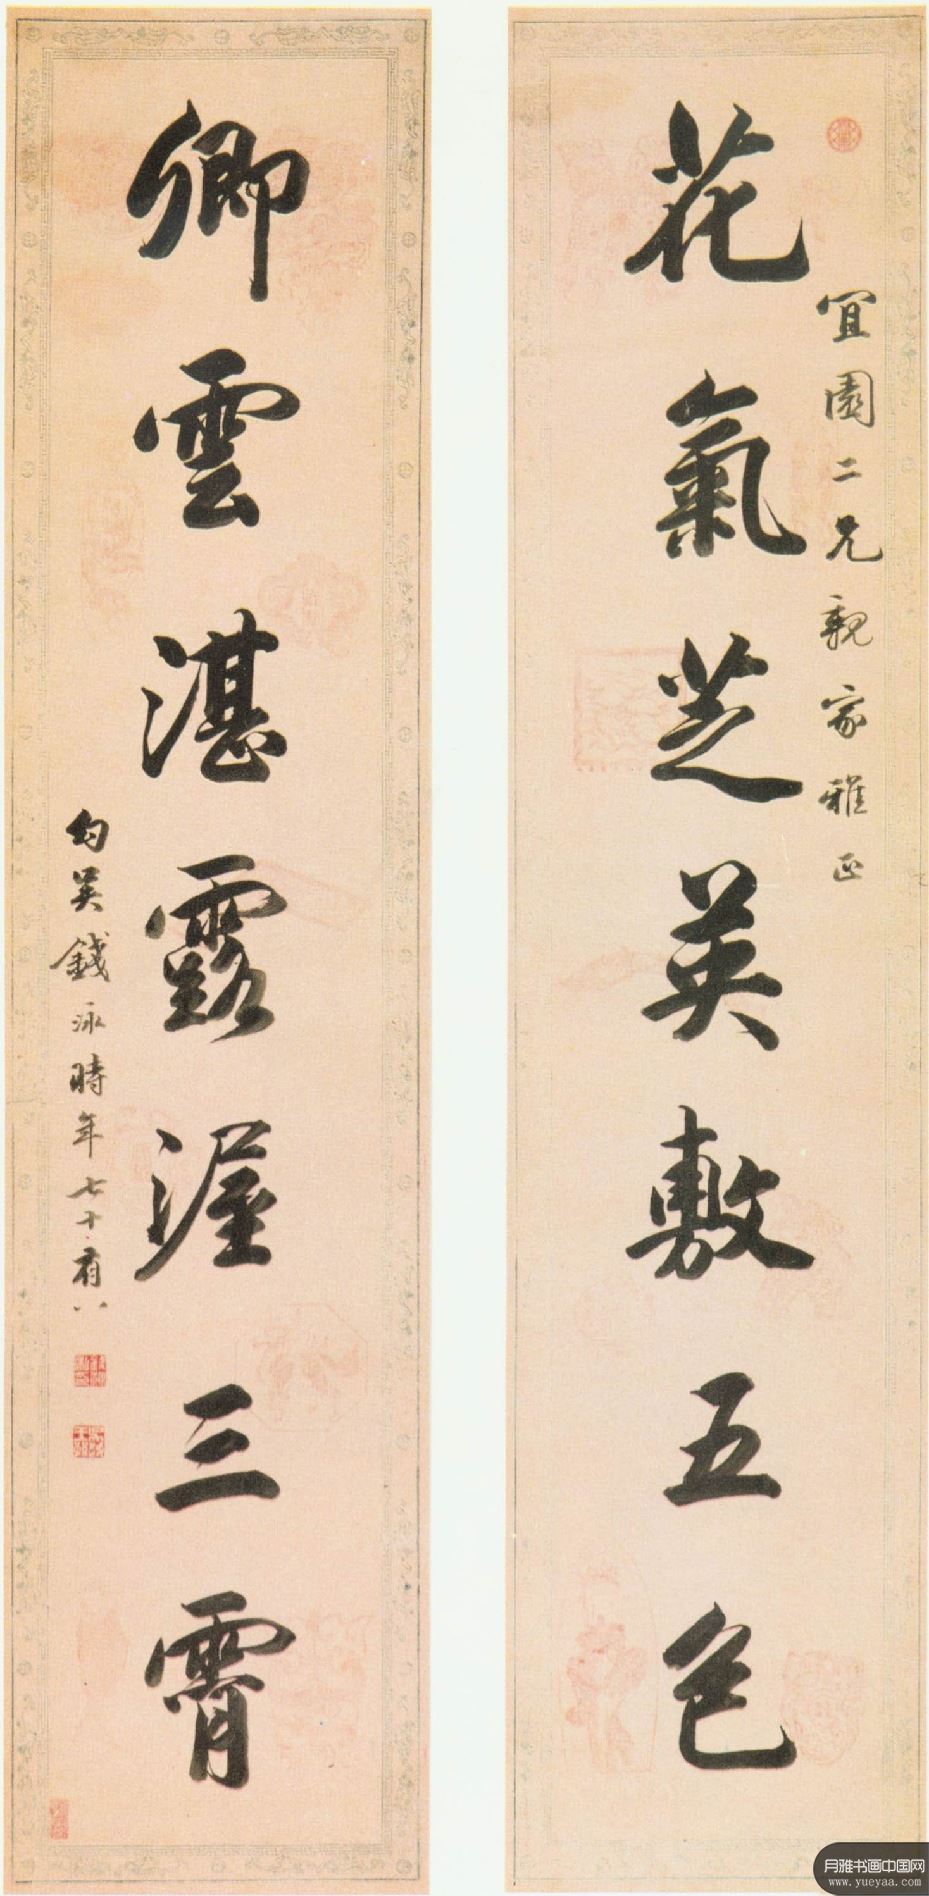 花氣芝英敷五色
宜園二兄親家雅正
卿雲湛露渥三霄
勾吴錢泳時年七十有八
月雅书画中国网
www.yueyaa.com